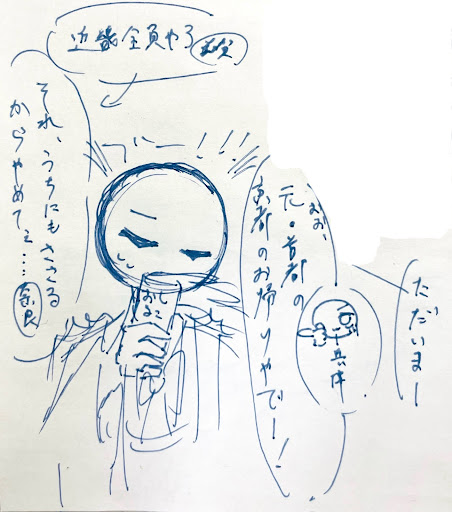 ただいまー
おお、
元・首都の
京都のお帰りやでー!
兵庫
ブーー!!!
おし
るこ
近畿全員やろ
それ、うちにもささる
からやめてェ……
奈良